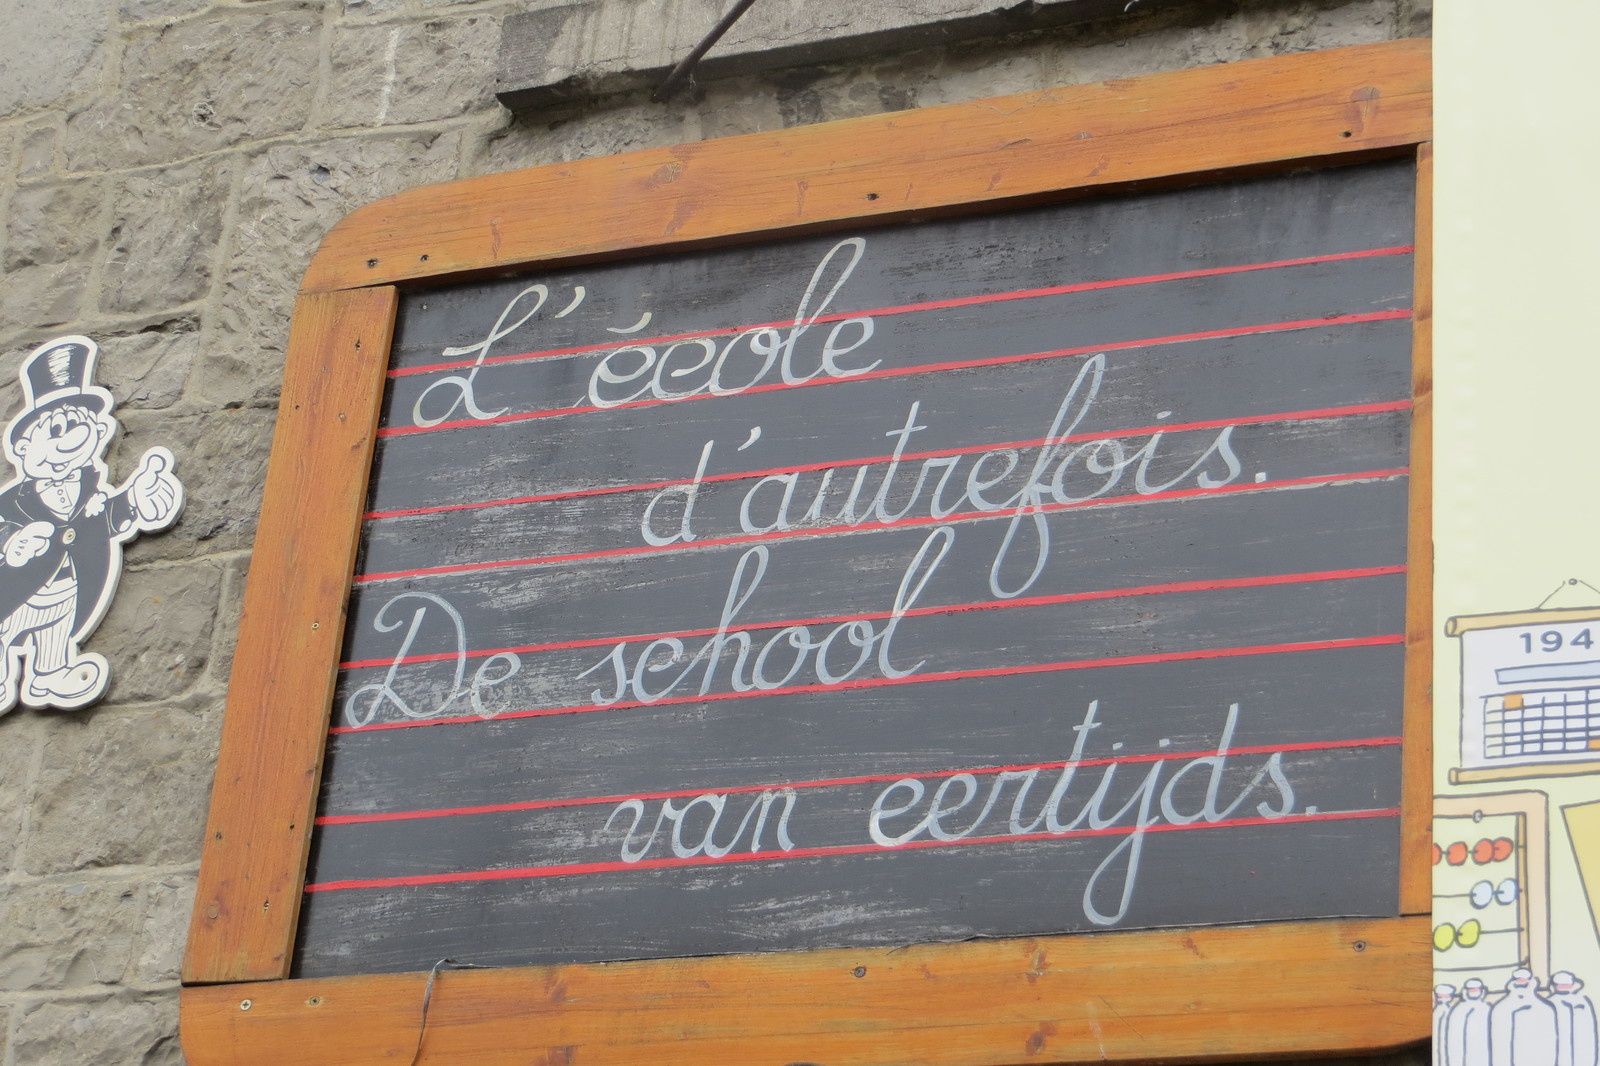 L'école
d'autrefois.
De school
van eertijds.
194